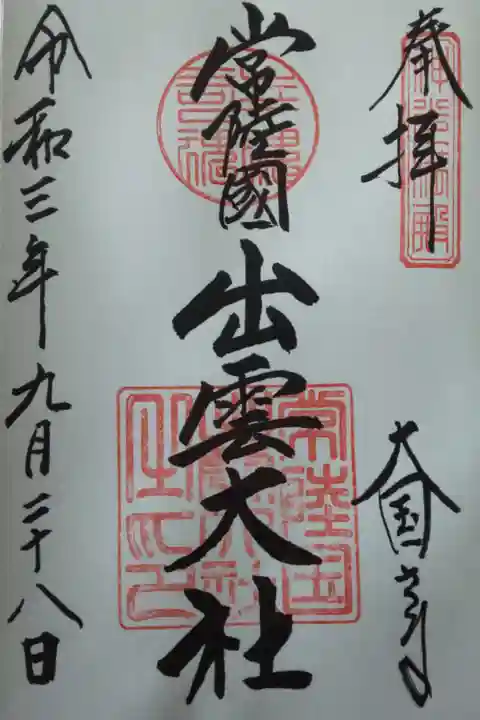 奉拝
大国享
常陸國出雲大社
常陸国出雲大社之印
令和三年九月二十八日